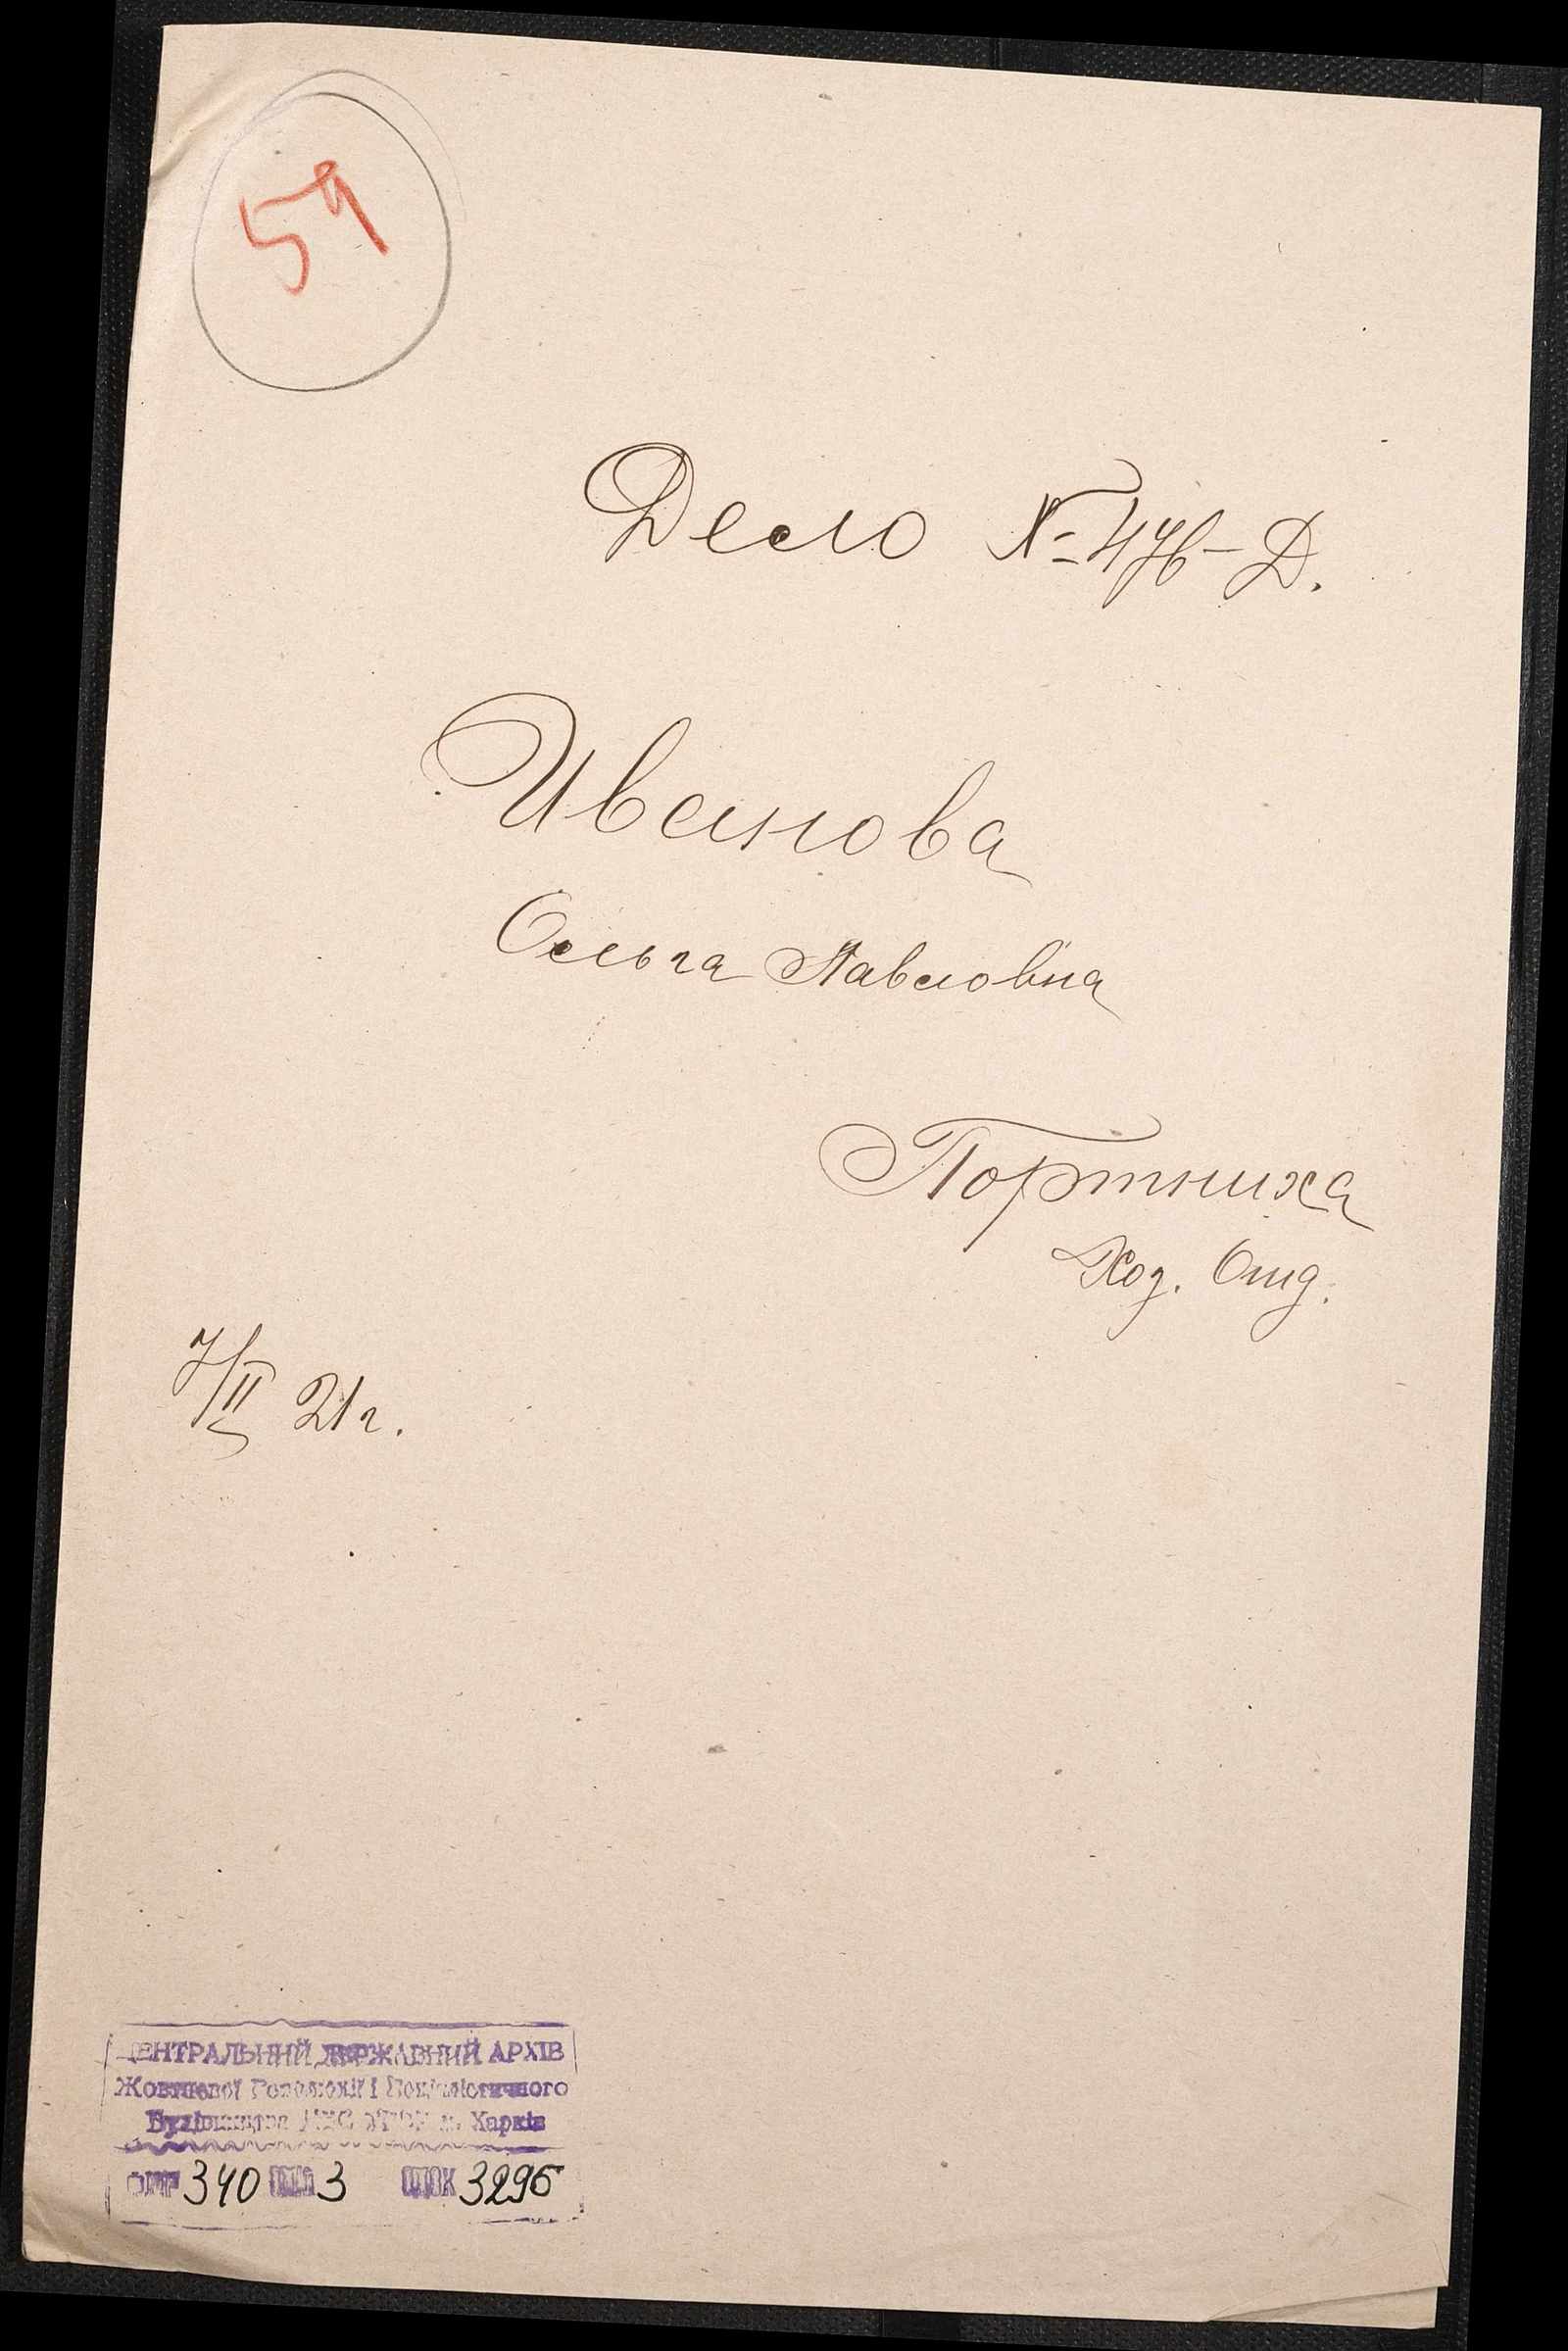 59
Дело № 476-Д.
Иванова
Ольга Павловна
Портниха
Хоз. Отд.
7/II 21 г.
ЦЕНТРАЛЬНИЙ ДЕРЖАВНИЙ АРХІВ
Жовтневої Революції і Соціалістичного
Будівництва УРСР м. Харків
340 3 3295